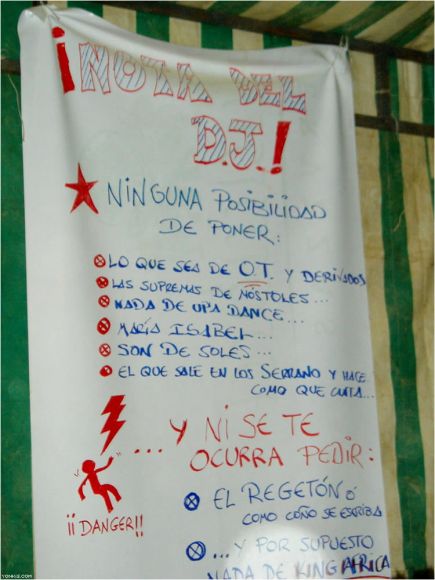 ¡NOTA DEL
D.J.!
NINGUNA POSIBILIDAD
DE PONER:
LO QUE SEA DE O.T. Y DERIVADOS
LAS SUPREMAS DE MÓSTOLES...
NADA DE UPA DANCE...
MARÍA ISABEL...
SON DE SOLES...
EL QUE SALE EN LOS SERRANO Y HACE
COMO QUE CANTA...
... Y NI SE TE
OCURRA PEDIR:
EL REGETÓN Ó
COMO COÑO SE ESCRIBA
¡¡DANGER!!
... Y POR SUPUESTO
NADA DE KING AFRICA